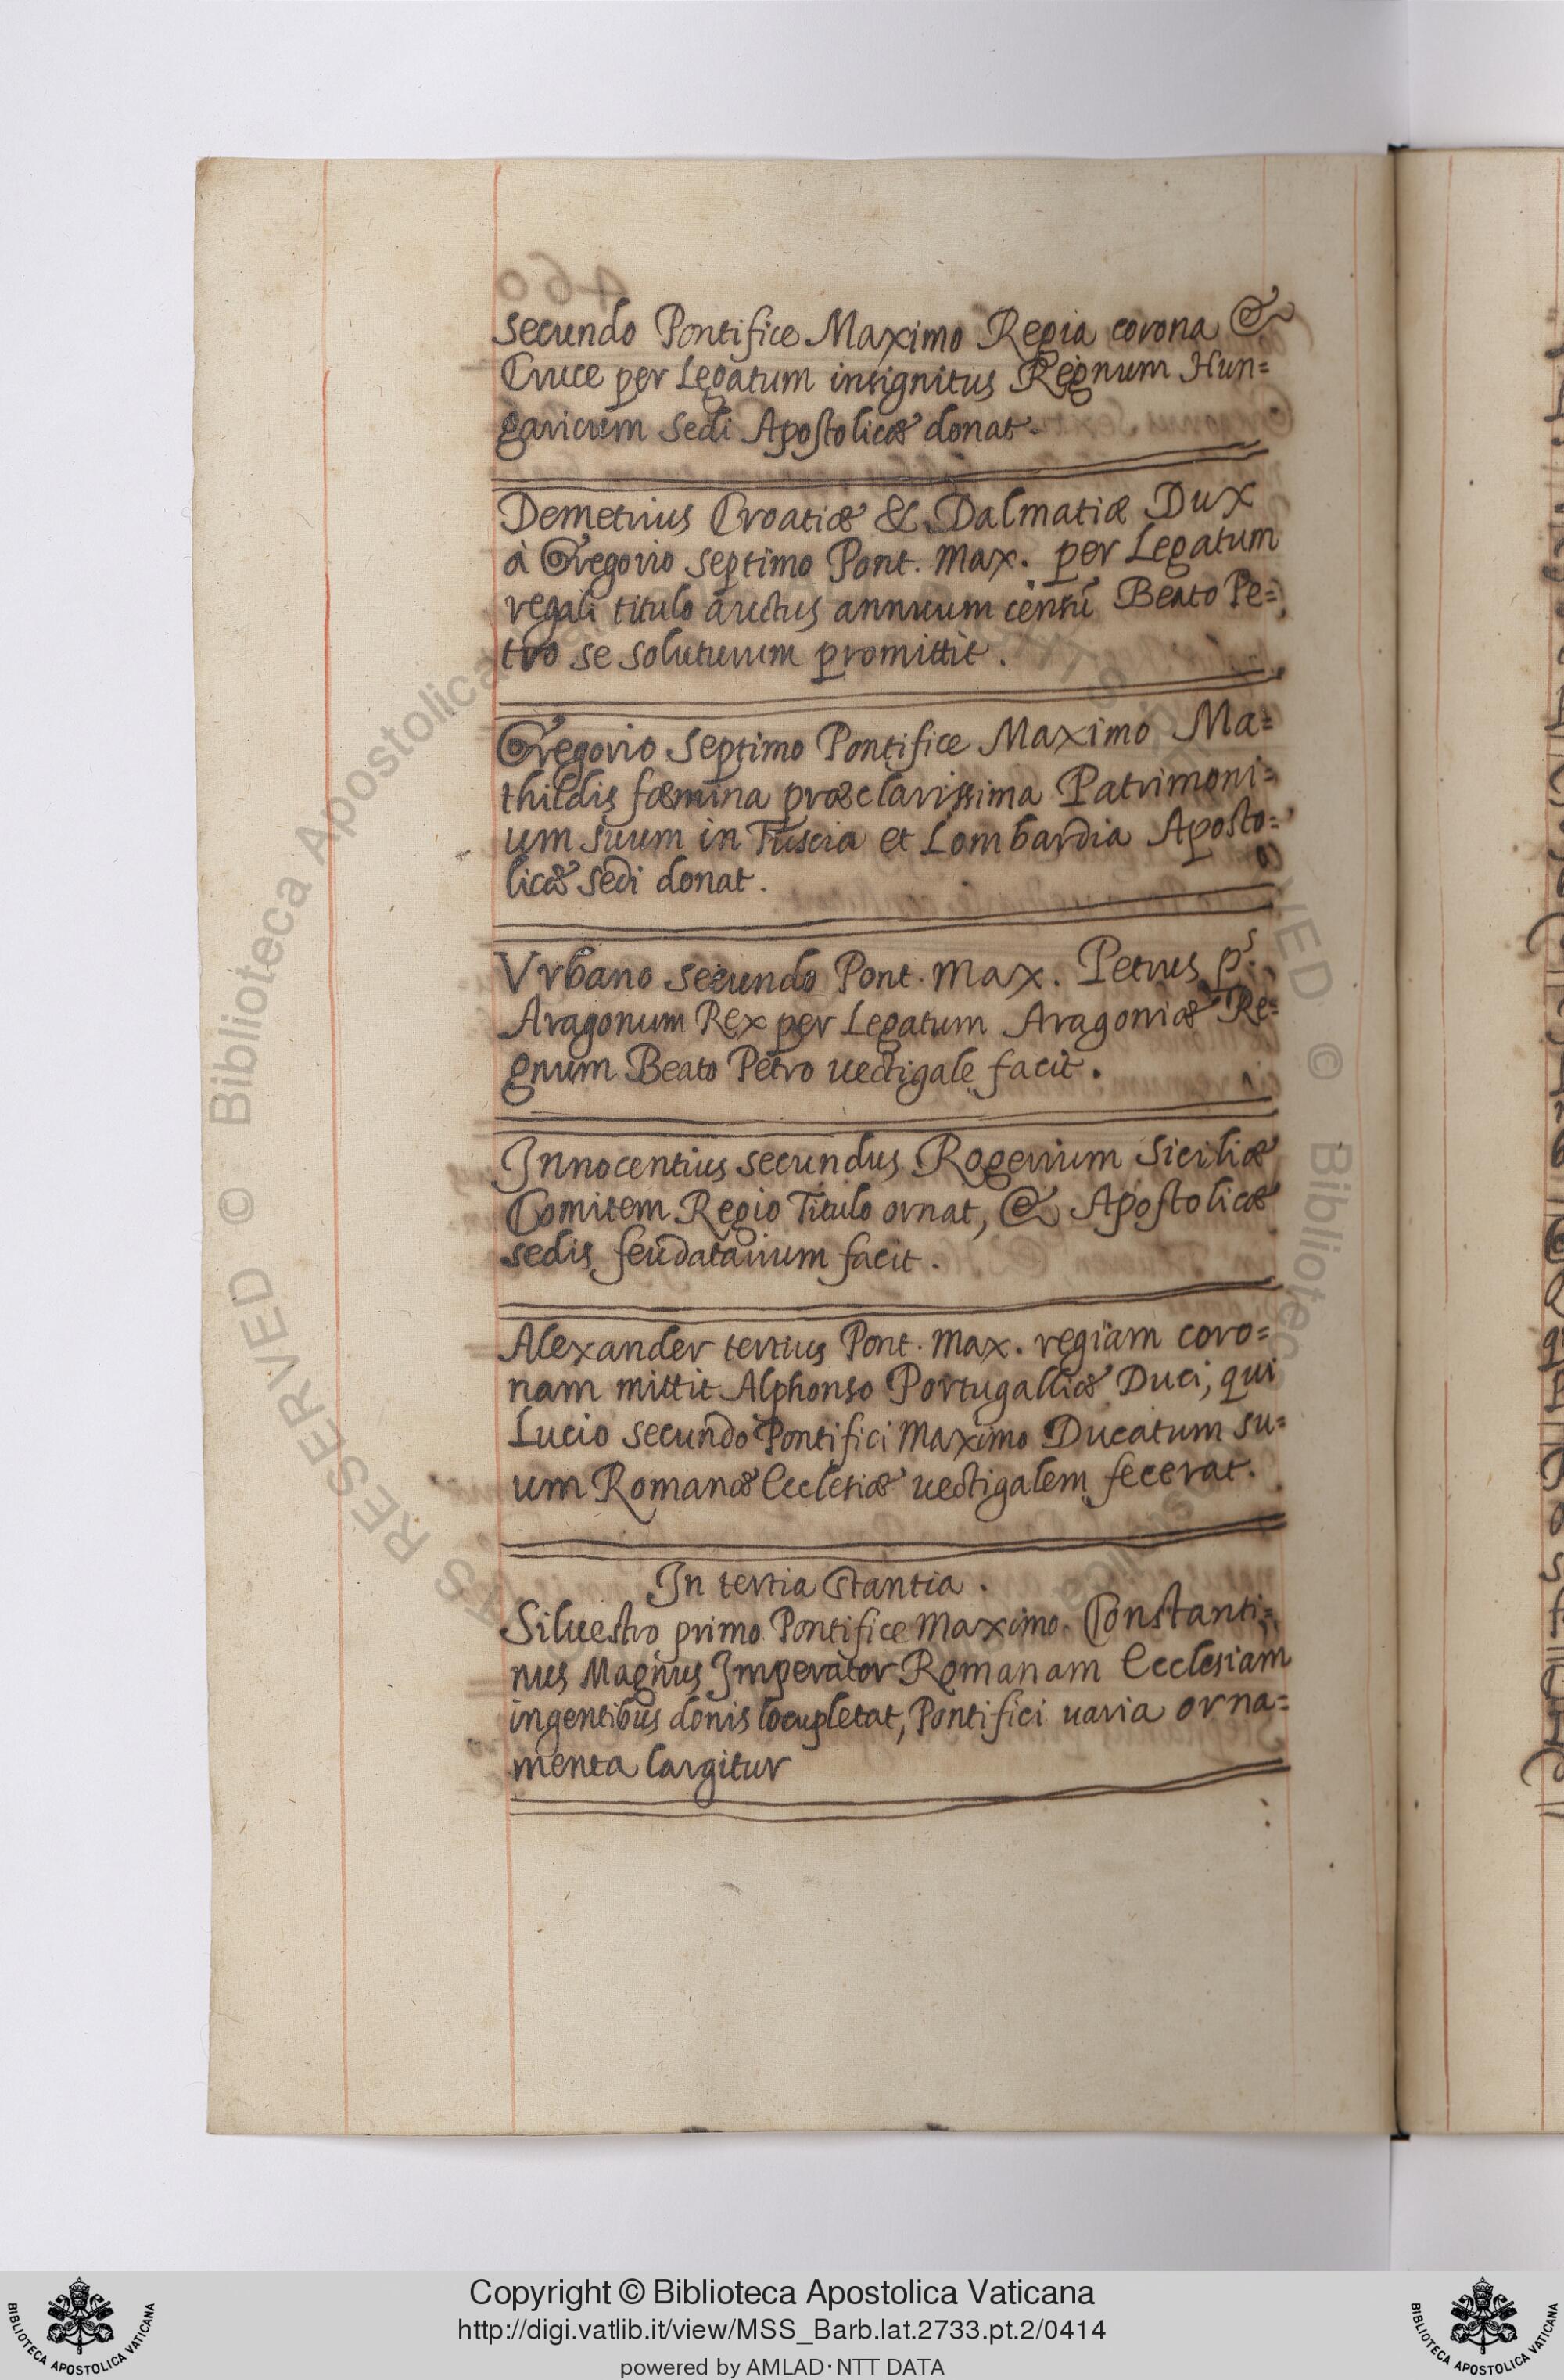 secundo Pontifice Maximo Regia corona &
Cruce per Legatum insignitus Regnum Hun=
garicum Sedi Apostolicæ donat.
Demetrius Croatiæ & Dalmatiæ Dux
à Gregorio septimo Pont. Max. per Legatum
regali titulo auctus annuum censũ Beato Pe=
tro se soluturum promittit.
Gregorio Septimo Pontifice Maximo Ma=
thildis fœmina præclarissima Patrimoni=
um suum in Tuscia et Lombardia Aposto=
licæ sedi donat.
Vrbano secundo Pont. Max. Petrus p.s
Aragonum Rex per Legatum Aragoniæ Re=
gnum Beato Petro uectigale facit.
Innocentius secundus Rogerium Siciliæ
Comitem Regio Titulo ornat, & Apostolicæ
sedis feudatarium facit.
Alexander tertius Pont. Max. regiam coro=
nam mittit Alphonso Portugalliæ Duci, qui
Lucio secundo Pontifici Maximo Ducatum su=
um Romanæ Ecclesiæ uectigalem fecerat.
In tertia stantia.
Siluestro primo Pontifice Maximo. Constanti=
nus Magnus Imperator Romanam Ecclesiam
ingentibus donis locupletat, Pontifici uaria orna=
menta largitur
Copyright © Biblioteca Apostolica Vaticana
http://digi.vatlib.it/view/MSS_Barb.lat.2733.pt.2/0414
powered by AMLAD·NTT DATA
BIBLIOTECA APOSTOLICA VATICANA
BIBLIOTECA APOSTOLICA VATICANA